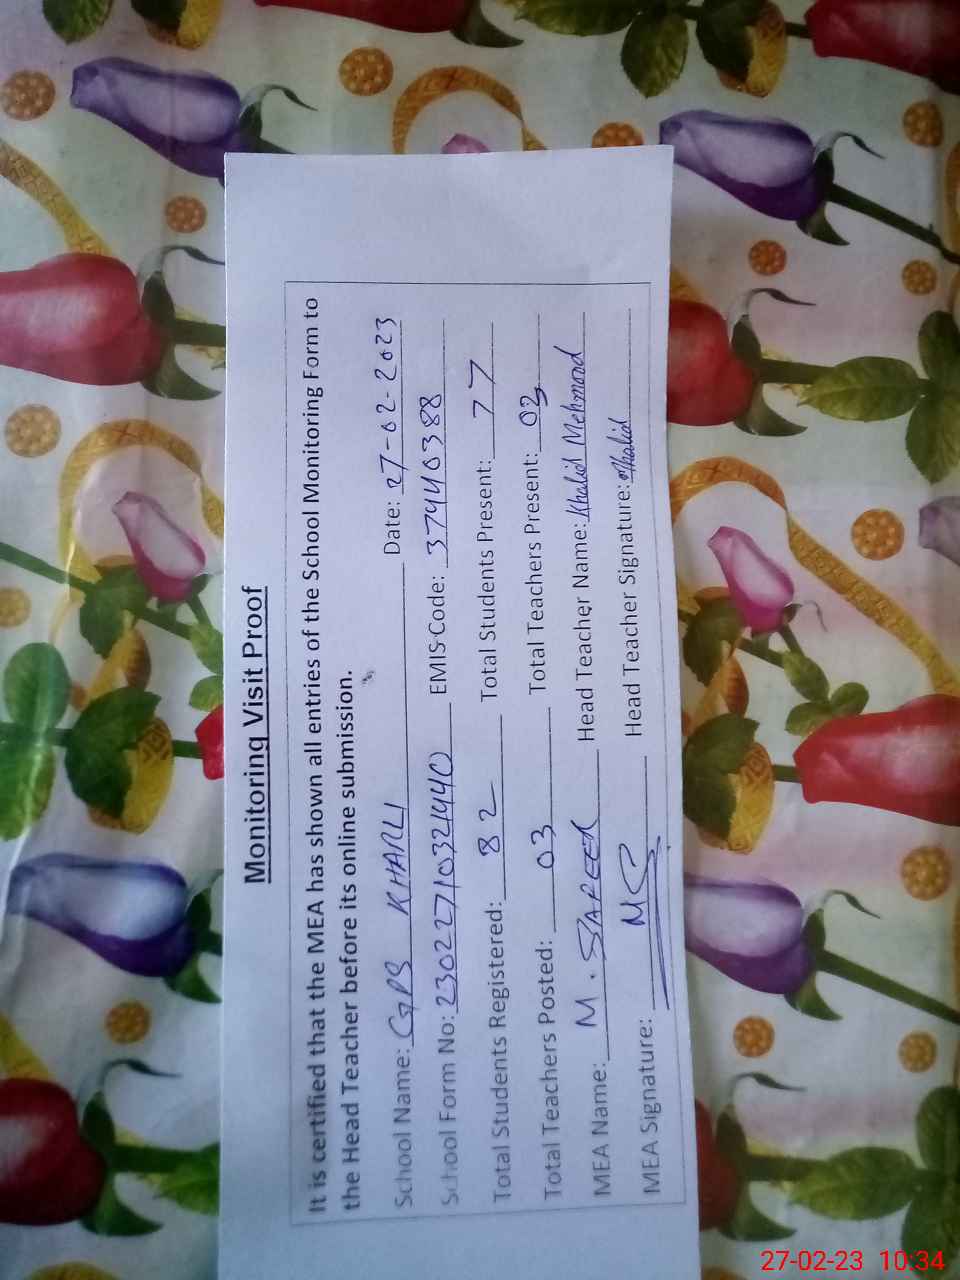 Monitoring Visit Proof
It is certified that the MEA has shown all entries of the School Monitoring Form to
the Head Teacher before its online submission.
School Name: GPS KHARLI Date: 27-02-2023
School Form No: 230227103214440 EMIS Code: 37440388
Total Students Registered: 82 Total Students Present: 77
Total Teachers Posted: 03 Total Teachers Present: 03
MEA Name: M. SAFEER Head Teacher Name: Khalid Mehmood
MEA Signature: MS Head Teacher Signature: Khalid
27-02-23 10:34